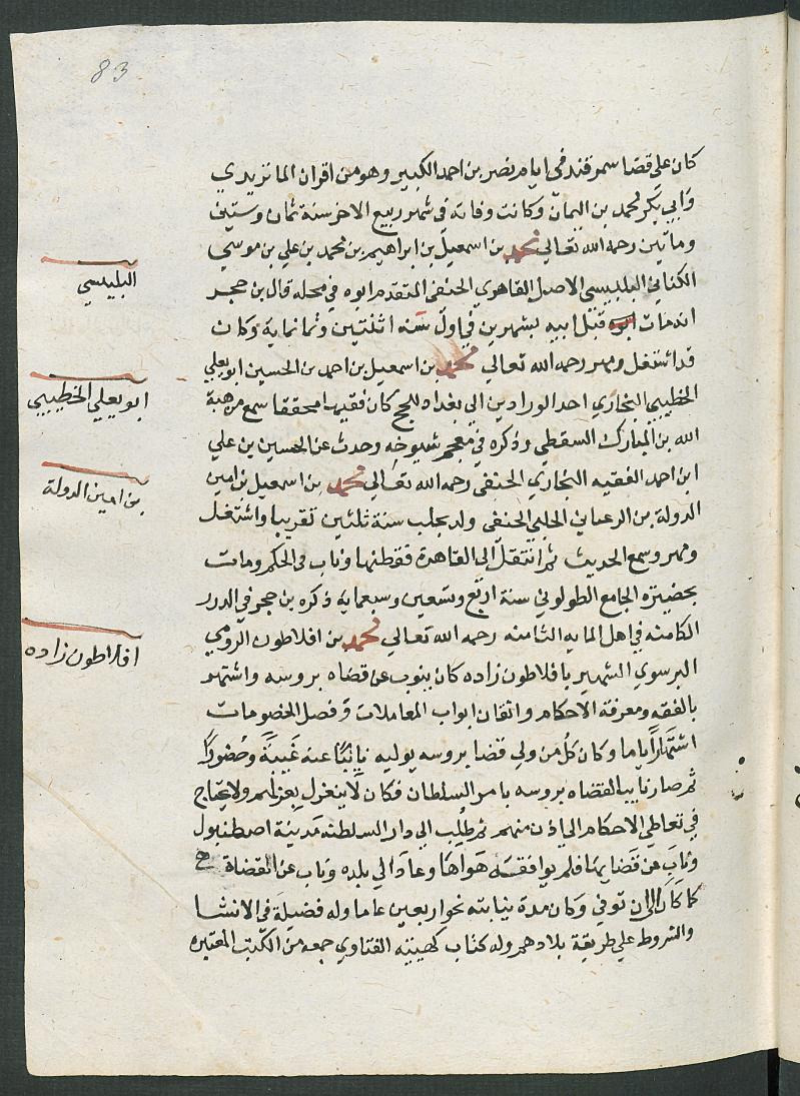 83
كان على قضا سمرقند في ايام نصر بن احمد الكبير وهو من اقران الماتريدي
وابي بكر محمد بن اليمان وكانت وفاته في شهور ربيع الاخر سنة ثمان وستين
وماتين رحمه الله تعالي محمد بن اسمعيل بن ابراهيم بن محمد بن علي بن موسي
الكناني البلبيسي الاصل القاهري الحنفي المتقدم ابوه في محله قال بن حجر
انه مات قبل ابيه بشهرين في اول سنه اثنتين وثمانماية وكان
قد اشتغل ومهر رحمه الله تعالي محمد بن اسمعيل بن احمد بن الحسين ابو يعلي
الخطيبي البخاري احد الورادين الي بغداد للحج كان فقيها محققا سمع من هبة
الله بن المبارك السقطي وذكره في معجم شيوخه وحدث عن الحسين بن علي
ابن احمد الفقيه البخاري الحنفي رحمه الله تعالي محمد بن اسمعيل بن امين
الدولة بن الرعباني الحلبي الحنفي ولد بحلب سنة ثلثين تقريبا واشتغل
ومهر وسمع الحديث ثم انتقل الي القاهرة فقطنها وناب في الحكم ومات
بحضرة الجامع الطولوني سنة اربع وتسعين وسبعماية ذكره بن حجر في الدرر
الكامنه في اهل المايه الثامنه رحمه الله تعالي محمد بن افلاطون الرومي
البرسوي الشهير بافلاطون زاده كان ينوب عن قضاه بروسه واشتهر
بالفقه ومعرفة الاحكام واتقان ابواب المعاملات وفصل الخصومات
اشتهارا ياما وكان كل من ولي قضا بروسه يوليه نائبا عنه غيبة وحضورا
ثم صار نايب القضاه بروسه بامر السلطان فكان لا ينعزل بعزلهم ولا يحتاج
في تعاطي الاحكام الي اذن منهم ثم طلب الي دار السلطنه مدينة اصطنبول
وناب عن قضايها فلم يوافقه هواها وعاد الي بلده وناب عن القضاة
كما كان الي ان توفي وكان مدة نيابته نحو اربعين عاما وله فضيلة في الانشا
والشروط علي طريقة بلادهم وله كتاب كهيئة الفتاوي جمعه من الكتب المعتبره
البلبيسي
ابو يعلي الخطيبي
بن امين الدولة
افلاطون زاده